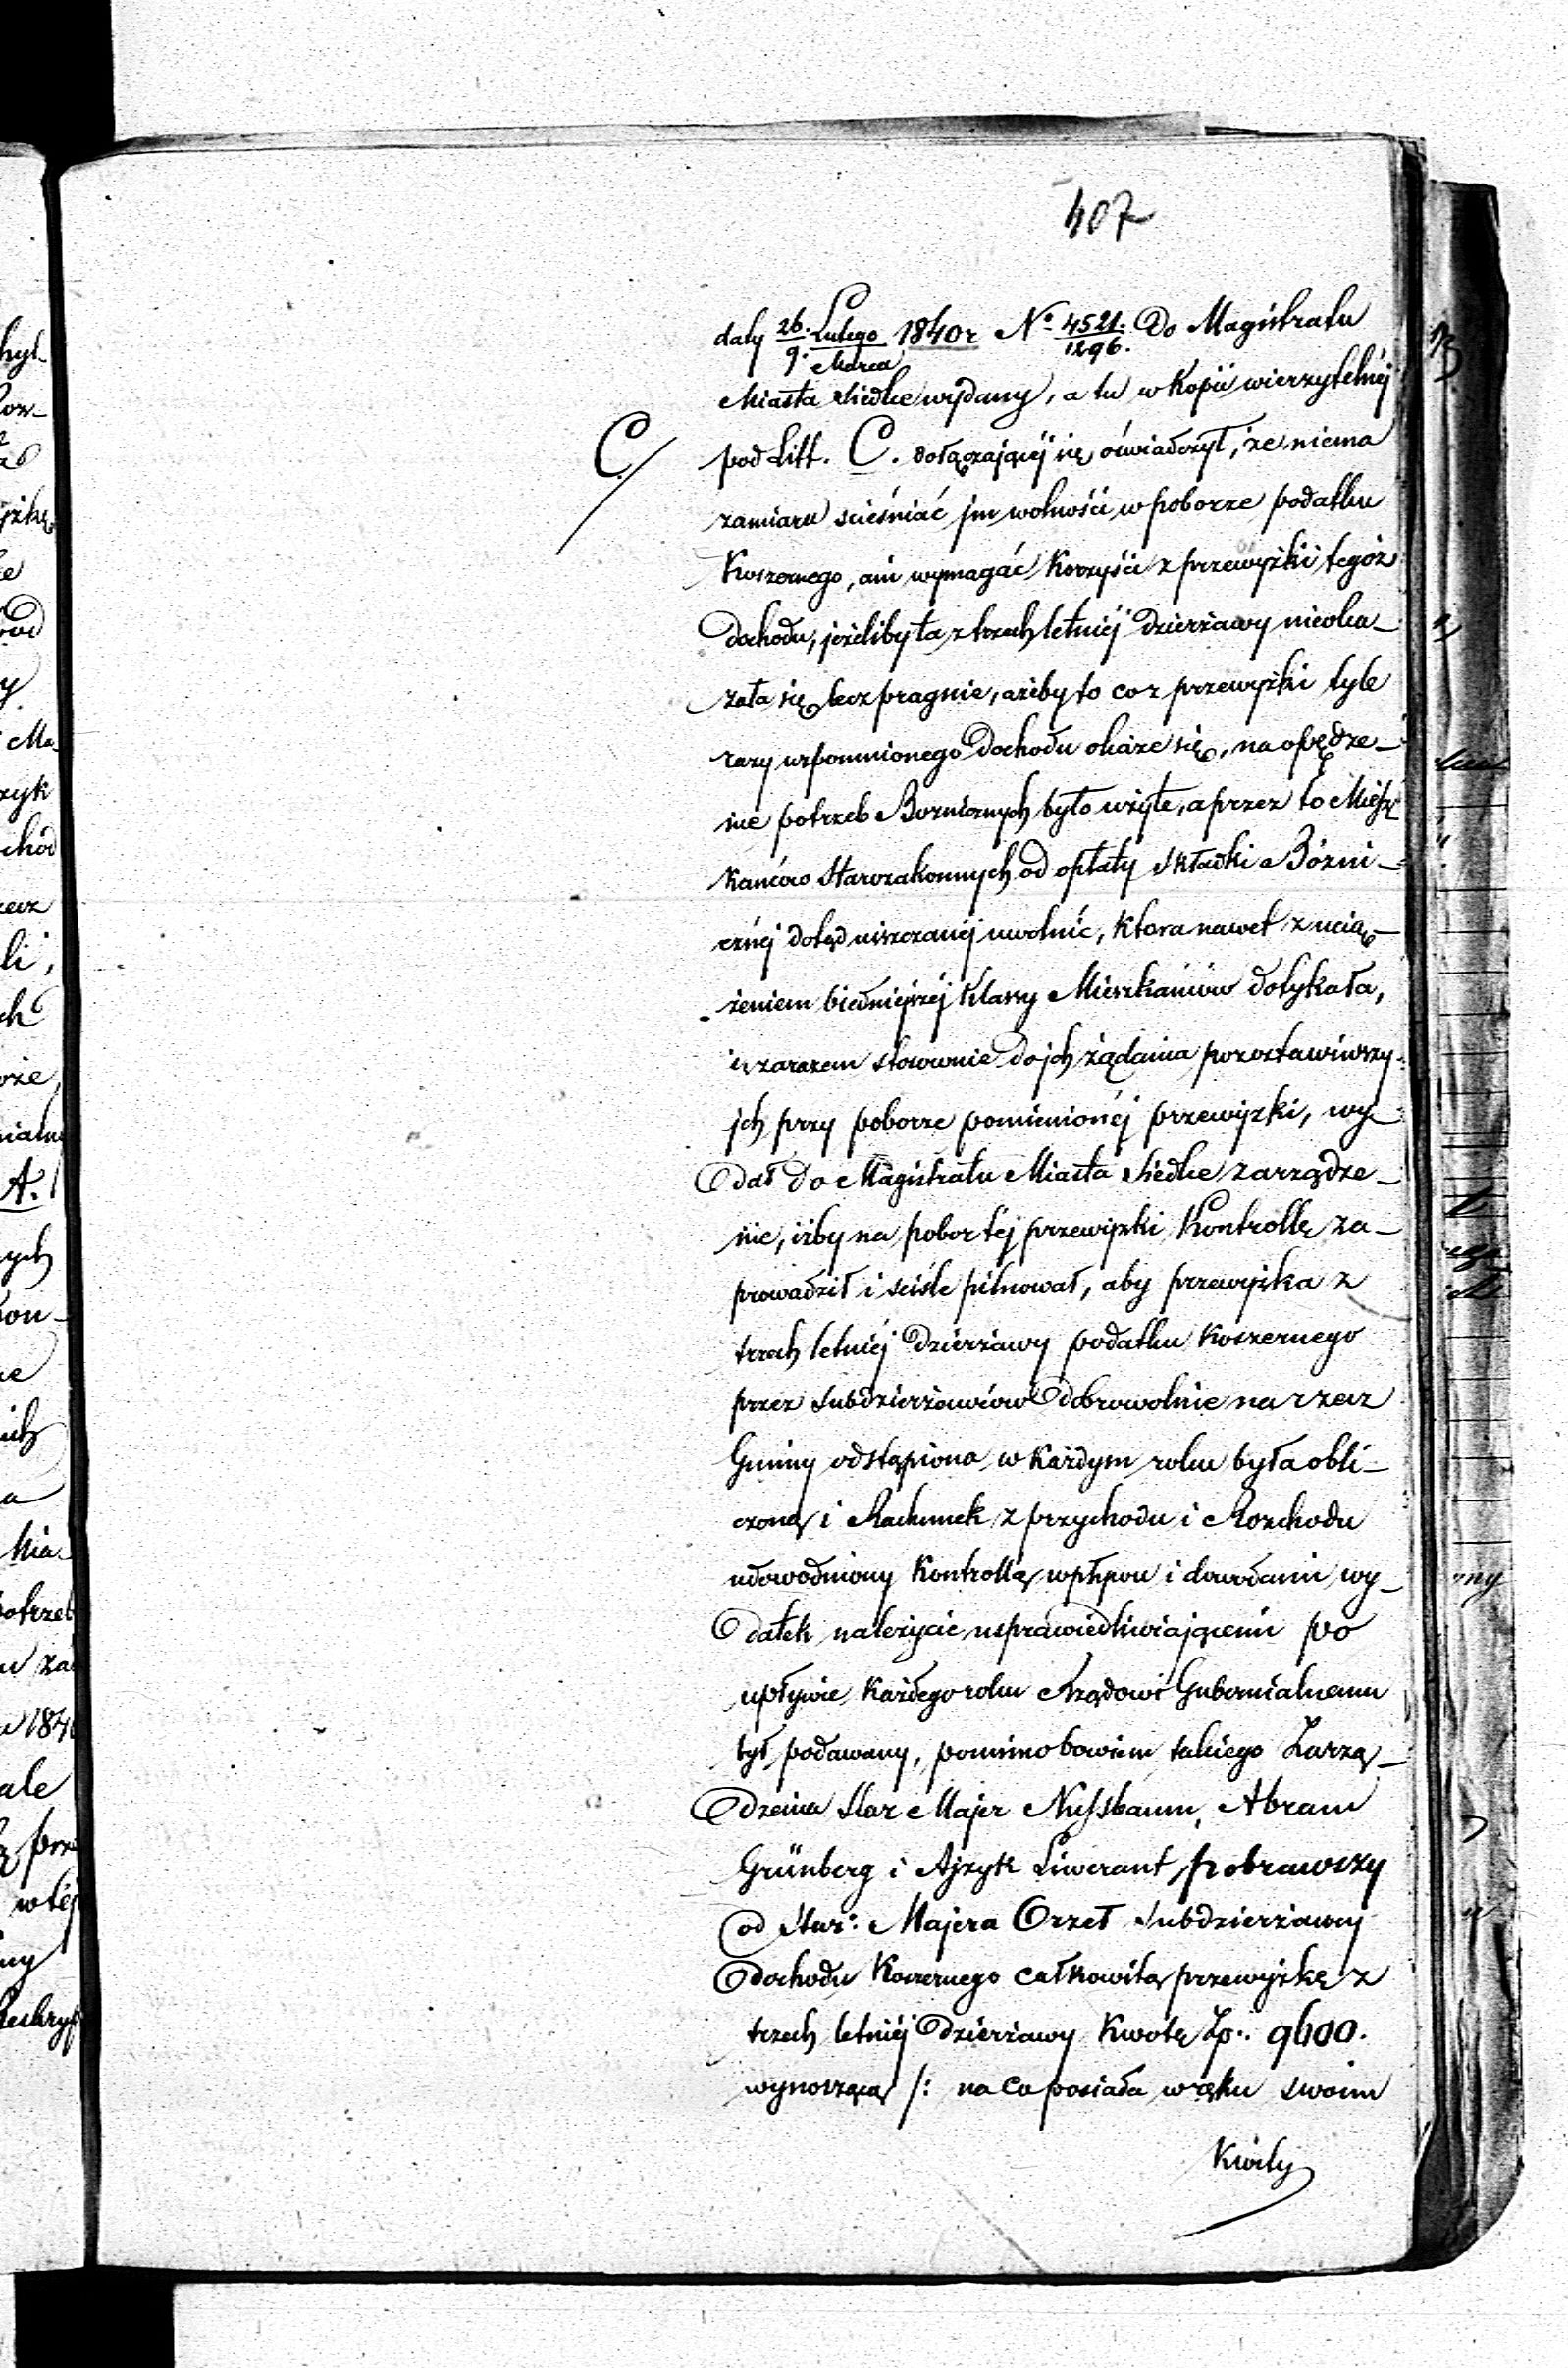 407
daty 26. Lutego / 9. Marca 1840 r No 4521. / 1296. Do Magistratu
Miasta Siedlce wydany, a tu w Kopii wierzytelnéj
C./ pod Litt. C. dołączającéj się oświadczył, że niema
zamiaru scieśniać jm wolności w poborze podatku
Koszernego, ani wymagać Korzyści z przewyżki tegóż
Dochodu, jeżeliby ta z trzech letniéj Dzierżawy nieoka_
zała się lecz pragnie, ażeby to co z przewyżki tyle
razy wspomnionego Dochodu okáże się, na opędze_
nie potrzeb Bozniczných było użyte, a przez to Miesz
Kańców Starozakonnych od opłaty Składki Bózni_
cznéj dotąd uiszczanéj uwolnić, Ktora nawet z ucią_
żeniem biedniejszéj Klassy Mieszkańców dotykała,
i zarazem stosownie do jch żądania pozostawiwszy
jch przy poborze pomienionéj przewyżki, wy_
Dał do Magistratu Miasta Siedlce zarządze_
nie, iżby na pobor téj przewyżki Kontrollę za_
prowadził i sciśle pilnował, aby przewyżka z
trzech letniéj Dzierżawy podatku Koszernego
przez Subdzierżawców Dobrowolnie na rzecz
Gminy odstąpiona w Każdym roku była obli_
czoną i Rachunek z przychodu i Rozchodu
udowodniony Kontrollą wpływu i dowodami wy_
Datek należycie usprawiedliwiającemi po
upływie Każdego roku Rządowi Gubernialnemu
był podawany, pomimo bowiem takiego Zarzą_
Dzenia Star Majer Nussbaum, Abram
Grünberg i Ajzyk Liwerant pobrawszy
od Star: Majera Orzeł Subdzierżawcy
Dochodu Koszernego całkowitą przewyżkę z
trzech letniéj Dzierżawy Kwotę Zp: 9600.
wynoszącą /: na co posiada w ręku swoim
Kwity